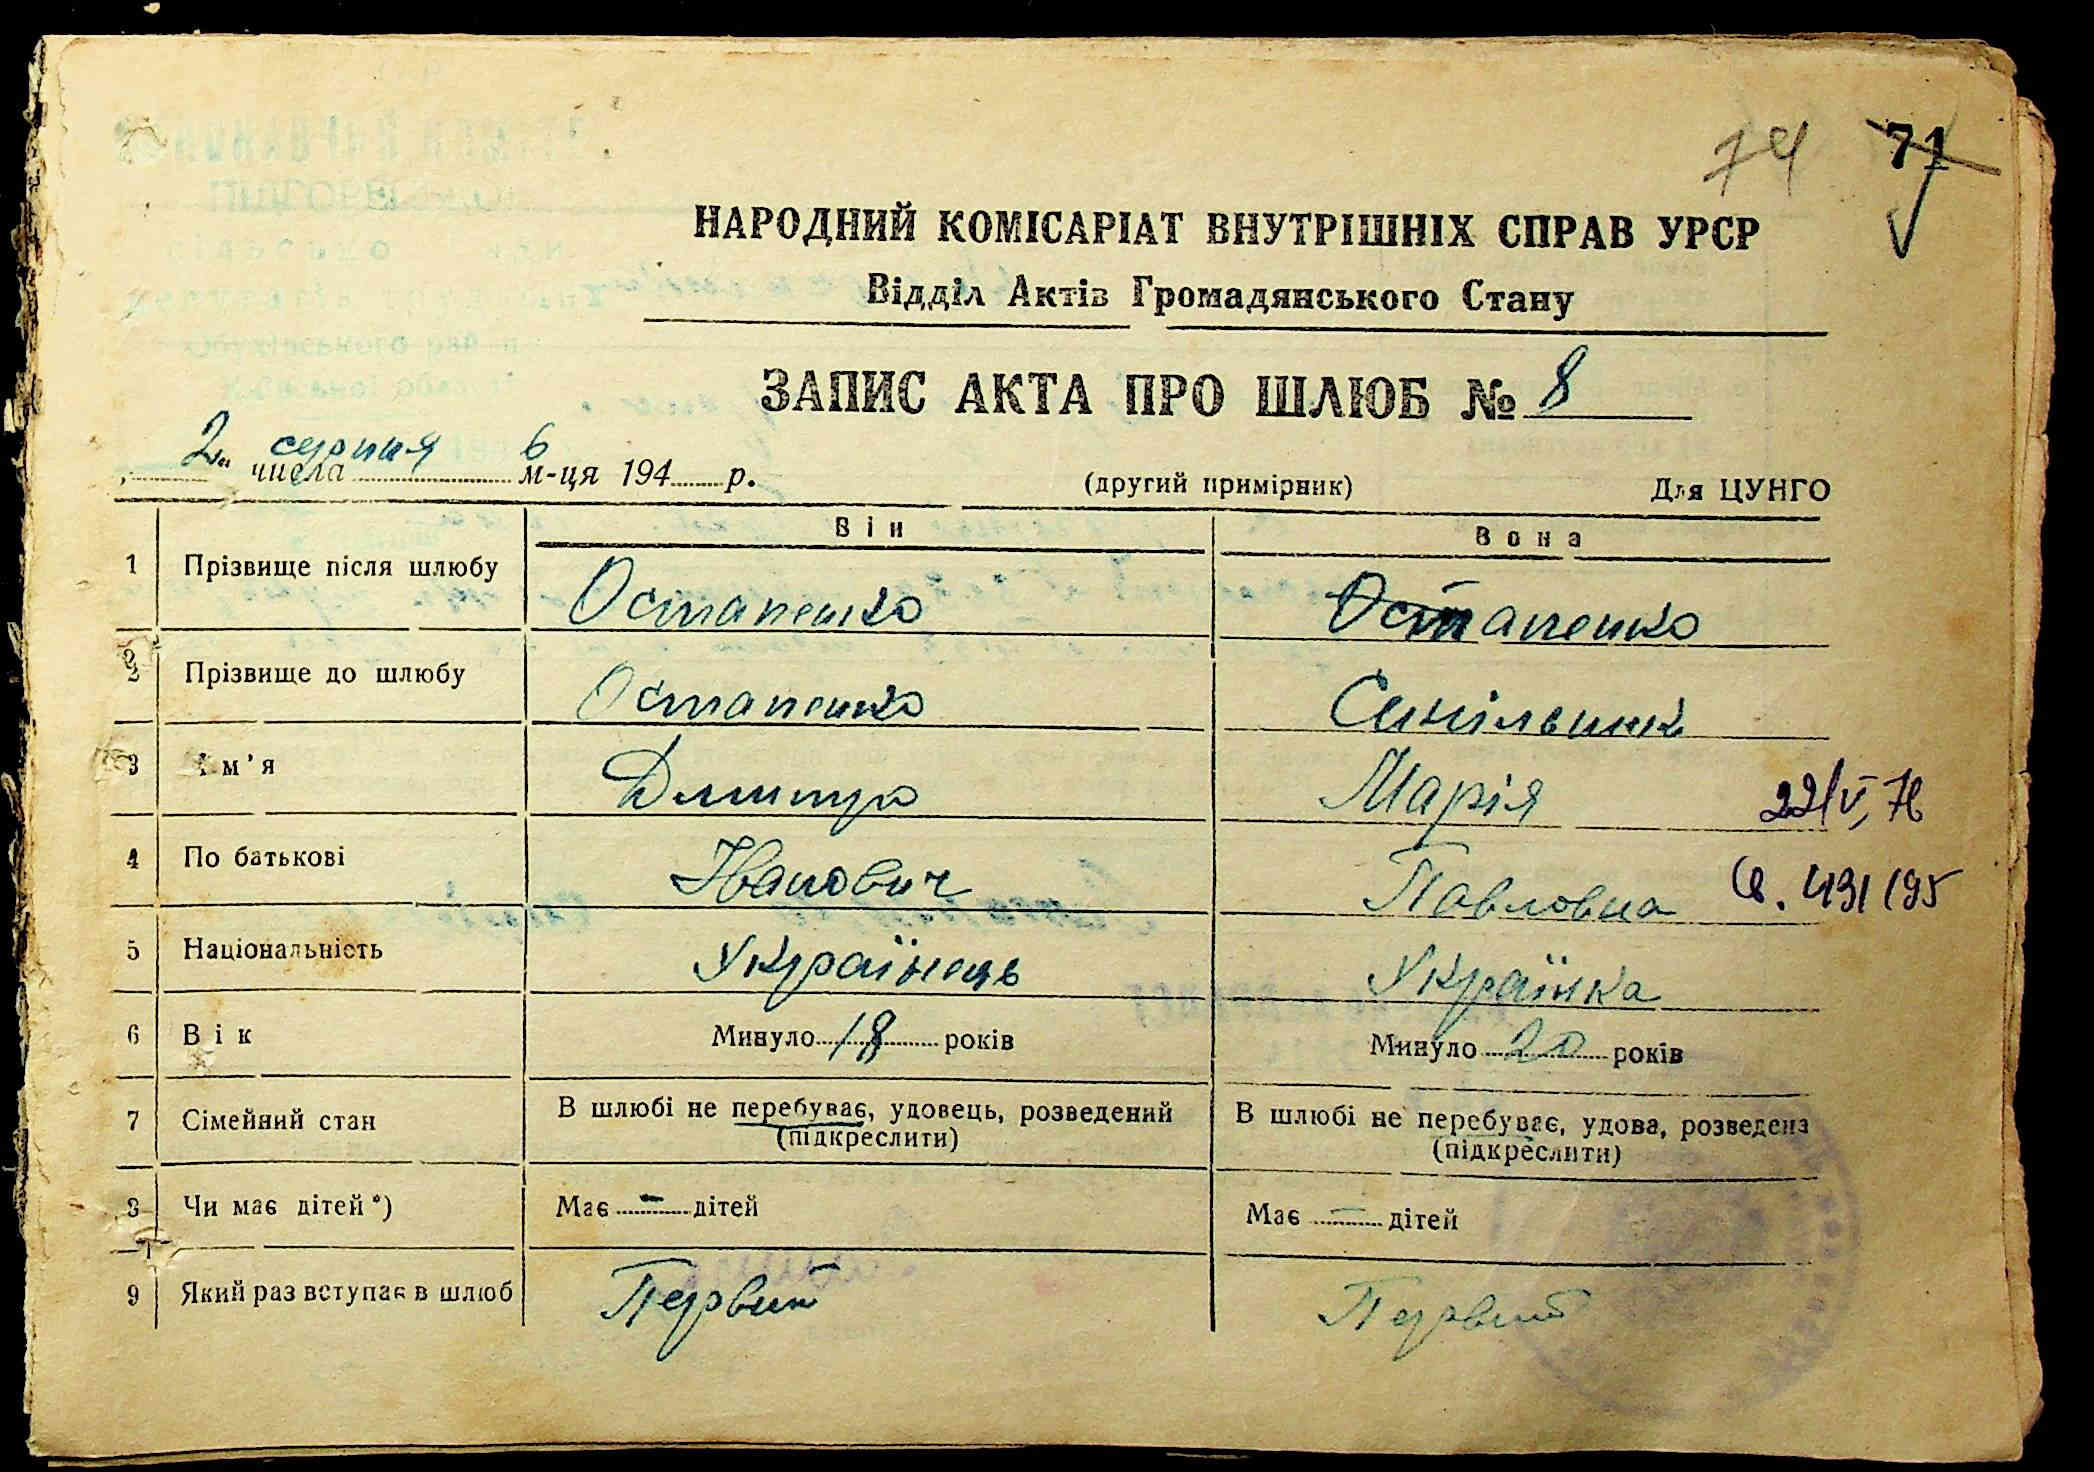 74 71
НАРОДНИЙ КОМІСАРІАТ ВНУТРІШНІХ СПРАВ УРСР
Відділ Актів Громадянського Стану
ЗАПИС АКТА ПРО ШЛЮБ № 8
„2“ числа серпня м-ця 1946 р. (другий примірник) Для ЦУНГО
Він Вона
1 Прізвище після шлюбу Остапенко Остапенко
2 Прізвище до шлюбу Остапенко
3 Ім’я Дмитро Марія 22/V, 76
4 По батькові Іванович Павловна 431/95
5 Національність Українець Українка
6 Вік Минуло 18 років Минуло 20 років
7 Сімейний стан В шлюбі не перебуває, удовець, розведений В шлюбі не перебуває, удова, розведена
(підкреслити) (підкреслити)
8 Чи має дітей*) Має — дітей Має — дітей
9 Який раз вступає в шлюб Первий Первий